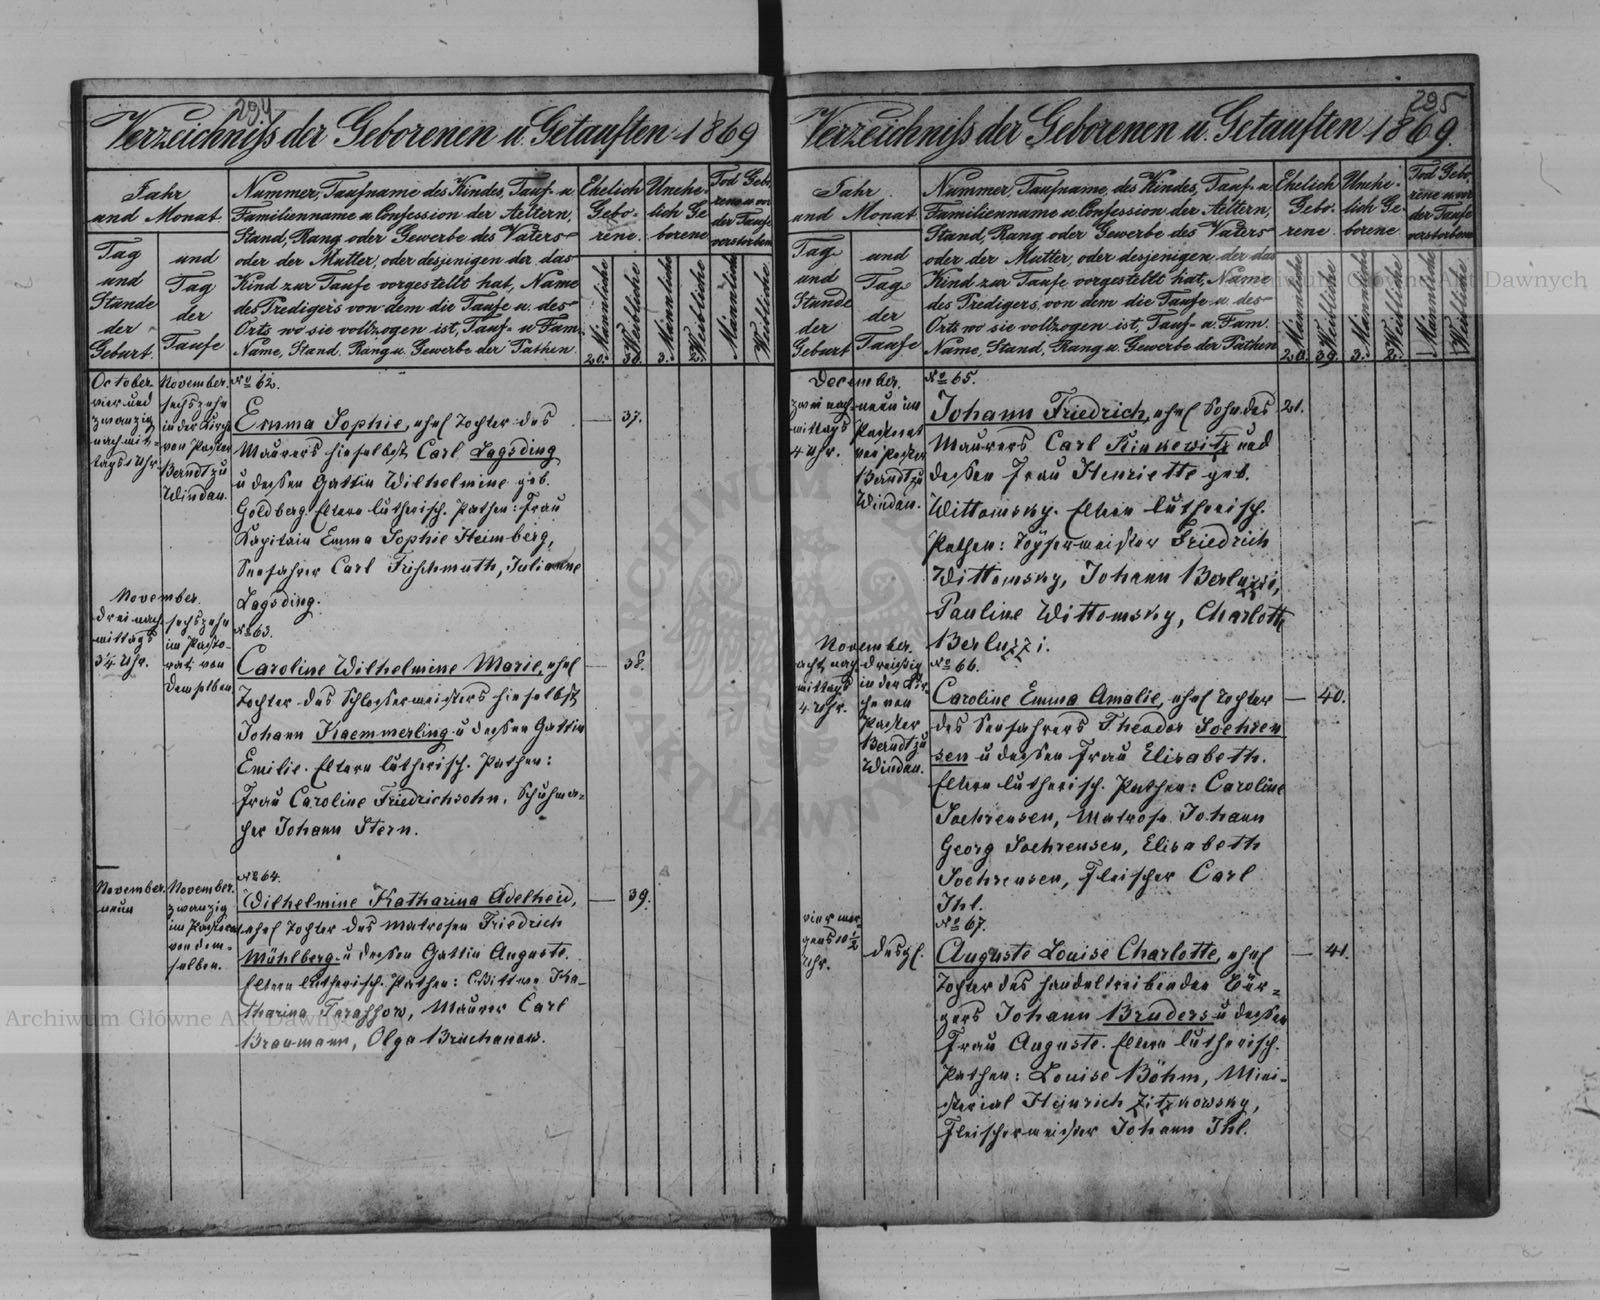 294
Verzeichniß der Geborenen u. Getauften 1869
Jahr
und Monat.
Tag
und
Stunde
der
Geburt.
und
Tag
der
Taufe
Nummer, Taufname des Kindes, Tauf- u
Familienname u Confession der Aeltern,
Stand, Rang oder Gewerbe des Vaters
oder der Mutter, oder desjenigen der das
Kind zur Taufe vorgestellt hat, Name
des Predigers von dem die Taufe u. des
Orts wo sie vollzogen ist, Tauf- u Fam.
Name, Stand, Rang u. Gewerbe der Pathen.
Ehelich
Gebo-
rene.
Unehe-
lich Ge
borene
Tod Gebo
rene u. vor
der Taufe
verstorbene
Männliche
Weibliche
Männliche
Weibliche
Männlich
Weibliche
20.
3.
October.
vier und
zwanzig
nachmit-
tags 1 Uhr.
November.
sechszehn
in der Kirche
von Pastor
Berndt zu
Windau.
No 62.
Emma Sophie, ehel Tochter des
Maurers hieselbst Carl Lagsding
u dessen Gattin Wilhelmine geb.
Goldberg. Eltern lutherisch. Pathen: Frau
Kapitain Emma Sophie Heimberg,
Seefahrer Carl Frischmuth, Julianne
Lagsding.
37.
November.
drei nach
mittags
3¼ Uhr.
sechszehn
im Pasto-
rat von
demselben.
No 63.
Caroline Wilhelmine Marie, ehel
Tochter des Schlossermeisters hieselbst
Johann Kaemmerling u dessen Gattin
Emilie. Eltern lutherisch. Pathen:
Frau Caroline Friedrichsohn, Schuhma-
cher Johann Stern.
38.
November.
neun
November.
zwanzig
im Pastorat
von dem-
selben.
No 64.
Wilhelmine Katharina Adelheid,
ehel Tochter des Matrosen Friedrich
Mühlberg u dessen Gattin Auguste.
Eltern lutherisch. Pathen: Wittwe Ka-
tharina, Maurer Carl
Braumann, Olga Bruchanow.
39.
295
Verzeichniß der Geborenen u. Getauften 1869.
Jahr
und Monat.
Tag
und
Stunde
der
Geburt
und
Tag
der
Taufe
Nummer, Taufname, des Kindes, Tauf- u
Familienname u Confession der Aeltern,
Stand, Rang oder Gewerbe des Vaters
oder der Mutter, oder desjenigen der das
Kind zur Taufe vorgestellt hat, Name
des Predigers, von dem die Taufe u. des
Orts wo sie vollzogen ist, Tauf- u. Fam.
Name, Stand, Rang u. Gewerbe der Pathen
Ehelich
Gebo-
rene.
Unehe-
lich Ge-
borene
Tod Gebo
rene u. vor
der Taufe
verstorbene
Männliche
Weibliche
Männliche
Weibliche
Männliche
Weibliche
20.
39.
3.
2.
December.
zwei nach-
mittags
4 Uhr.
neun im
Pastorat
von Pastor
Berndt zu
Windau.
No 65.
Johann Friedrich, ehel Sohn des
Maurers Carl Rinkewitz und
dessen Frau Henriette geb.
Wittomsky. Eltern lutherisch.
Pathen: Töpfermeister Friedrich
Wittomsky, Johann Berluzzi,
Pauline Wittomsky, Charlotte
Berluzzi.
21.
November.
acht nach
mittags
4 Uhr.
dreissig
in der Kir-
che von
Pastor
Berndt zu
Windau.
No 66.
Caroline Emma Amalie, ehel Tochter
des Seefahrers Theodor Soehren
sen u dessen Frau Elisabeth.
Eltern lutherisch. Pathen: Caroline
Soehrensen, Matrose Johann
Georg Soehrensen, Elisabeth
Soehrensen, Fleischer Carl
Ihl.
40.
vier mor-
gens 10½
Uhr.
desgl.
No 67.
Auguste Louise Charlotte, ehel
Tochter des handeltreibenden Bür-
gers Johann Bruders u dessen
Frau Auguste. Eltern lutherisch.
Pathen: Louise Böhm, Mini-
sterial Heinrich Zitzkowsky,
Fleischermeister Johann Ihl.
41.
Archiwum Główne Akt Dawnych
Archiwum Główne Akt Dawnych